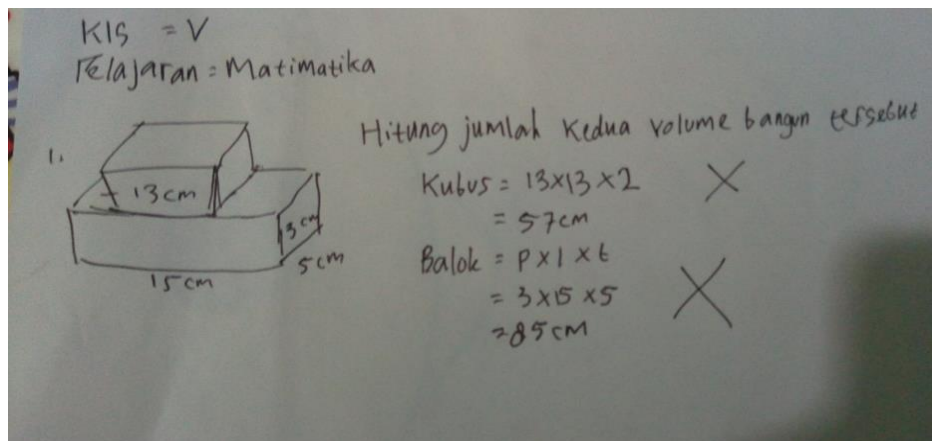 Kls = V
Pelajaran = Matimatika
1.
13 cm
3 cm
5 cm
15 cm
Hitung jumlah kedua volume bangun tersebut
Kubus = 13x13x2
= 57cm
Balok = P x l x t
= 3 x 15 x 5
= 85 cm